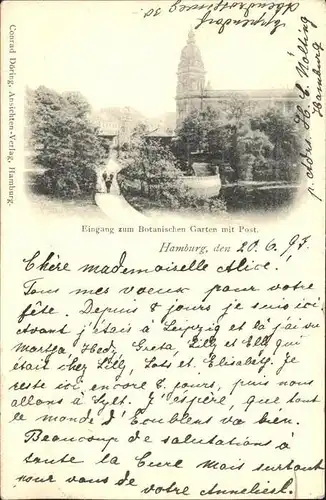 Eppendorf
Abendrothsweg 30.
p. adr. H. C. Nölting
Hamburg
Conrad Döring, Ansichten-Verlag, Hamburg.
Eingang zum Botanischen Garten mit Post.
Hamburg, den 20.6.97.
Chère mademoiselle Alice!
Tous mes voeux pour votre
fête. Depuis 8 jours je suis ici
avant j'étais à Leipzig et là j'ai vu
Martha, Hedj, Greta, Lilly et Elli qui
était chez Lilly, Lots et Elisabeth. Je
reste ici encore 8 jours, puis nous
allons à Sylt. J'espère, que tout
le monde d'Ecublens va bien.
Beaucoup de salutations à
toute la Cure mais surtout
pour vous de votre Anneliese.